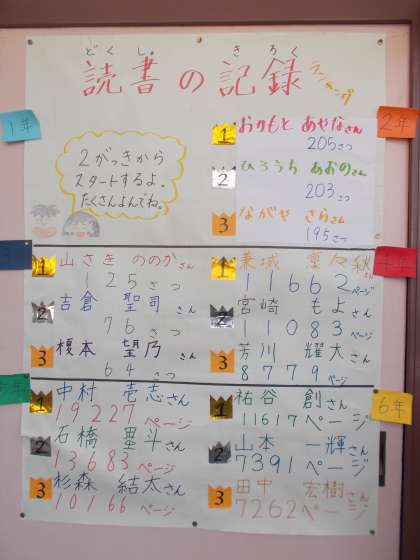 どくしょ の きろく
読書の記録
ランキング
1年
2がっきから
スタートするよ。
たくさんよんでね。
2年
1 おかもと あやなさん
205さつ
2 ひろうち あおのさん
203さつ
3 ながや さらさん
195さつ
1 山さき ののかさん
125さつ
2 吉倉 聖司さん
76さつ
3 榎本 望乃さん
64さつ
1
11662ページ
2 宮崎 もよさん
11083ページ
3 芳川 耀大さん
8779ページ
1 中村 壱志さん
19227ページ
2 石橋 塁斗さん
13683ページ
3 杉森 結太さん
10166ページ
6年
1 祐谷 創さん
11617ページ
2 山本 一輝さん
7391ページ
3 田中 宏樹さん
7262ページ